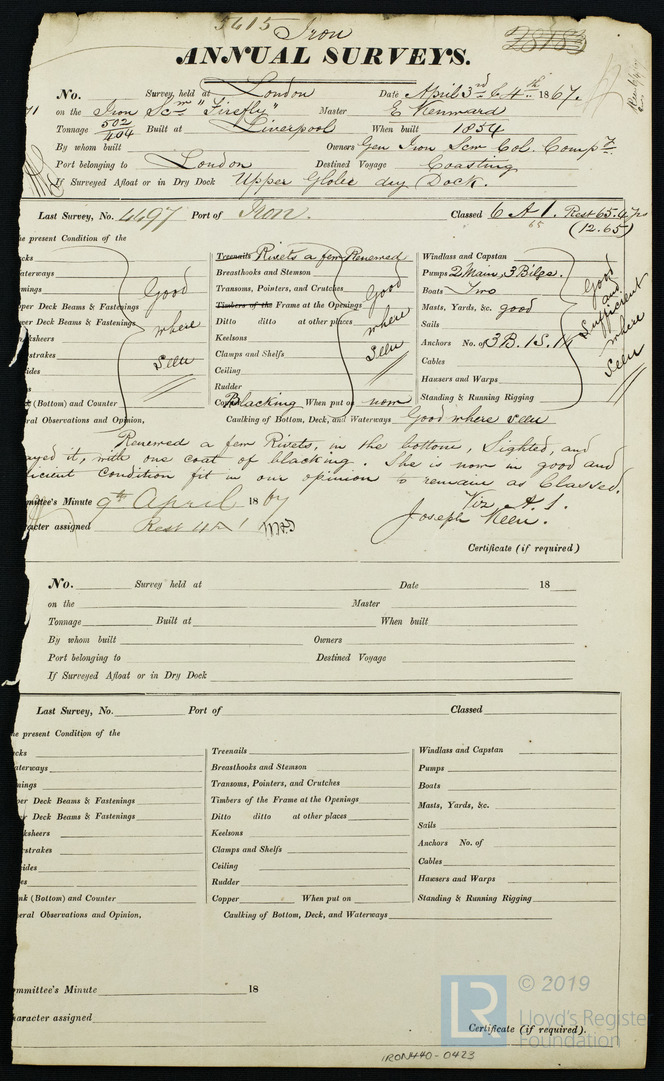 5615 Iron
28183
ANNUAL SURVEYS.
No. Survey held at London Date April 3rd & 4th 1867.
on the Iron Scw "Firefly" Master E Kenward
Tonnage 502/404 Built at Liverpool When built 1854
By whom built Owners Gen Iron Scw Col. Compy.
Port belonging to London Destined Voyage Coasting
If Surveyed Afloat or in Dry Dock Upper Globe dry Dock.
Last Survey, No. 4497 Port of Iron. Classed 6 A 1. Rest 65.
65 (12.65)
e present Condition of the
cks
aterways
mings
per Deck Beams & Fastenings
wer Deck Beams & Fastenings
ksheers
strakes
ides
s
k (Bottom) and Counter
Good where seen
Treenails Rivets a few Renewed
Breasthooks and Stemson
Transoms, Pointers, and Crutches
Timbers of the Frame at the Openings
Ditto ditto at other places
Keelsons
Clamps and Shelfs
Ceiling
Rudder
Good where seen
Blacking When put on now
Windlass and Capstan
Pumps 2 Main, 3 Bilge.
Boats Two
Masts, Yards, &c. good
Sails
Anchors No. of 3 B. 1 S. 1 K
Cables
Hausers and Warps
Standing & Running Rigging
Good and Sufficient where seen
ral Observations and Opinion, Caulking of Bottom, Deck, and Waterways Good where seen
Renewed a few Rivets, in the bottom, Sighted, and
ayed it, with one coat of blacking. She is now in good and
icient condition fit in our opinion to remain as Classed.
Viz A. 1.
mmittee's Minute 9th April 1867
Joseph Keen.
racter assigned Rest
Certificate (if required)
No. Survey held at Date 18
on the Master
Tonnage Built at When built
By whom built Owners
Port belonging to Destined Voyage
If Surveyed Afloat or in Dry Dock
Last Survey, No. Port of Classed
e present Condition of the
cks
aterways
mings
per Deck Beams & Fastenings
r Deck Beams & Fastenings
ksheers
strakes
ides
es
nk (Bottom) and Counter
Treenails
Breasthooks and Stemson
Transoms, Pointers, and Crutches
Timbers of the Frame at the Openings
Ditto ditto at other places
Keelsons
Clamps and Shelfs
Ceiling
Rudder
Copper When put on
Windlass and Capstan
Pumps
Boats
Masts, Yards, &c.
Sails
Anchors No. of
Cables
Hawsers and Warps
Standing & Running Rigging
eral Observations and Opinion, Caulking of Bottom, Deck, and Waterways
mmittee's Minute 18
haracter assigned
Certificate (if required).
LR © 2019
Lloyd's Register
Foundation
IRON440-0423